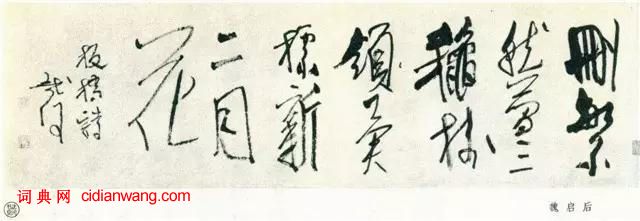 刪繁
就簡三
穐樹
領異
標新
二月
花
板橋詩
啟后
词典网 cidianwang.com
魏启后